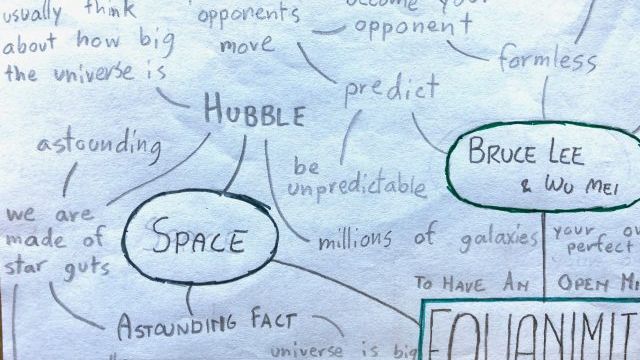 usually think
about how big
the universe is
opponents
move
opponent
formless
predict
HUBBLE
astounding
be
unpredictable
BRUCE LEE
& WU MEI
we are
made of
star guts
SPACE
millions of galaxies
your
perfect
TO HAVE AN OPEN
ASTOUNDING FACT
universe is big